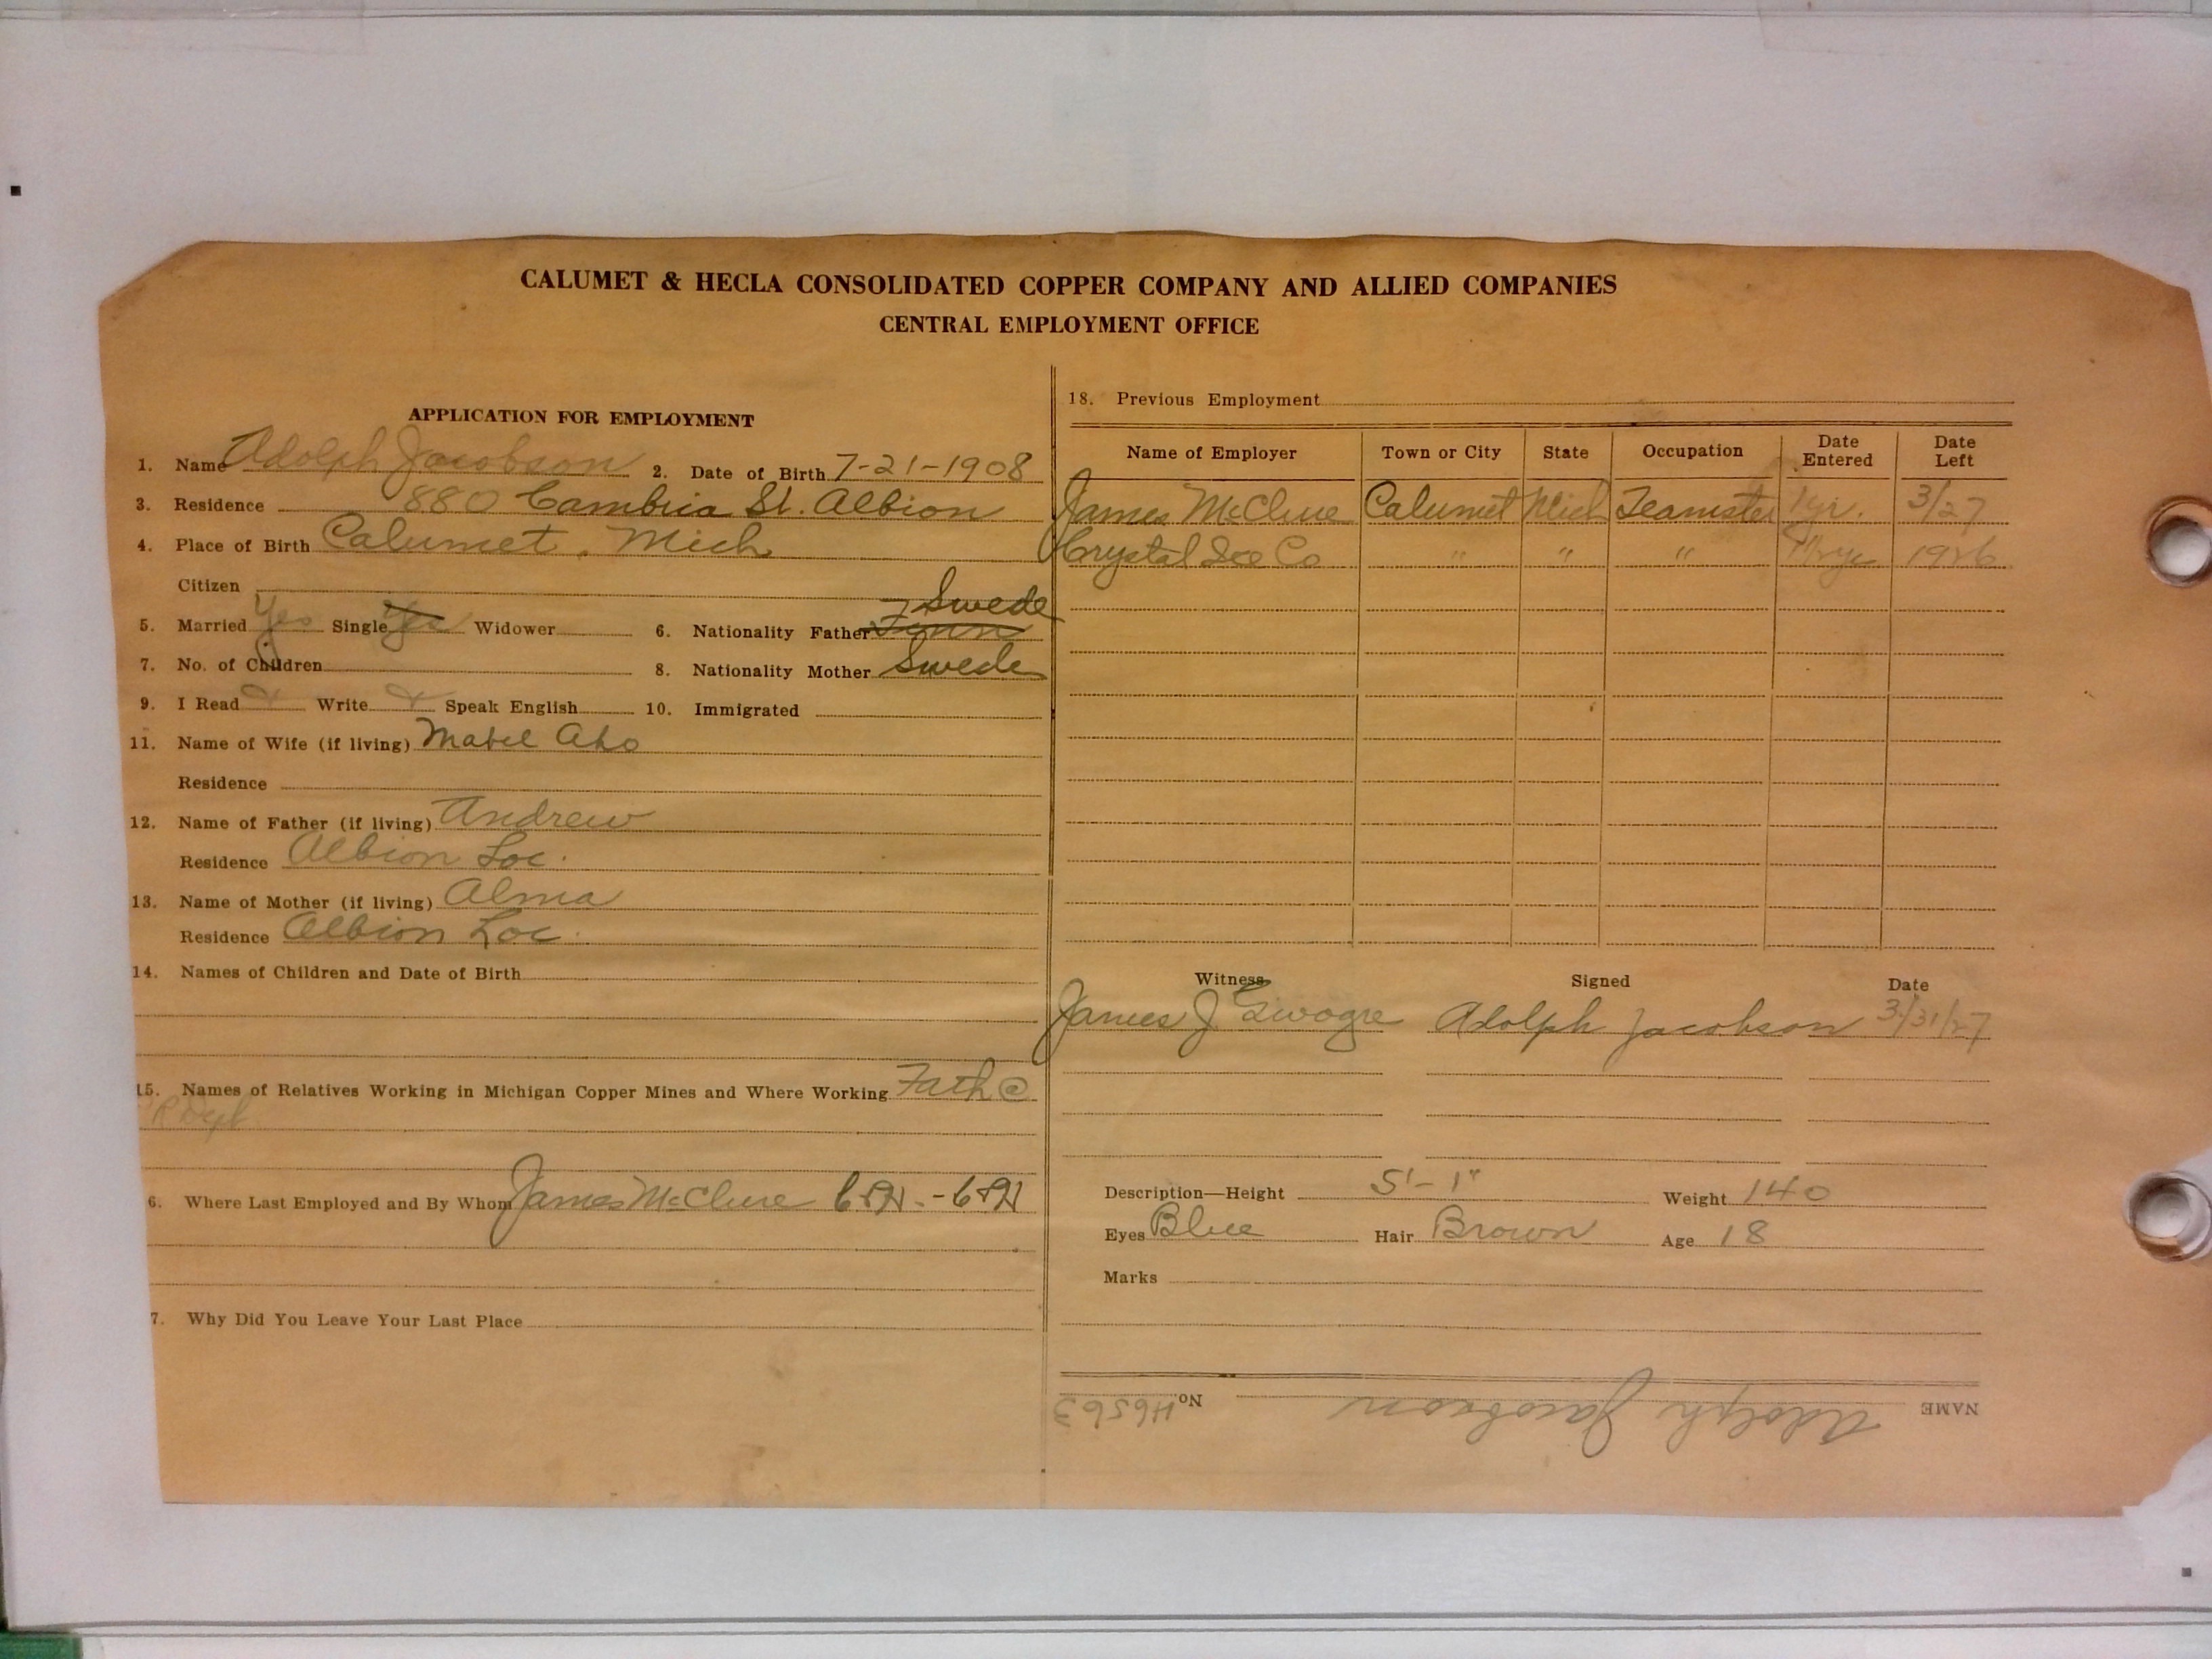 CALUMET & HECLA CONSOLIDATED COPPER COMPANY AND ALLIED COMPANIES
CENTRAL EMPLOYMENT OFFICE
APPLICATION FOR EMPLOYMENT
1. Name Adolph Jacobson 2. Date of Birth 7-21-1908
3. Residence 880 Cambria St. Albion
4. Place of Birth Calumet, Mich
Citizen
Swede
5. Married Yes Single Yes Widower 6. Nationality Father Finn
7. No. of Children 8. Nationality Mother Swede
9. I Read Write Speak English 10. Immigrated
11. Name of Wife (if living) Mabel Aho
Residence
12. Name of Father (if living) Andrew
Residence Albion Loc.
13. Name of Mother (if living) Alma
Residence Albion Loc.
14. Names of Children and Date of Birth
15. Names of Relatives Working in Michigan Copper Mines and Where Working Fath @
6. Where Last Employed and By Whom James McClure
7. Why Did You Leave Your Last Place
18. Previous Employment
Name of Employer Town or City State Occupation Date Entered Date Left
James McClure Calumet Mich Teamster 1 yr. 3/27
Crystal Ice Co " " " 1926
Witness Signed Date
James J. Adolph Jacobson 3/31/27
Description—Height 5'-1" Weight 140
Eyes Blue Hair Brown Age 18
Marks
NAME Adolph Jacobson No. H6563